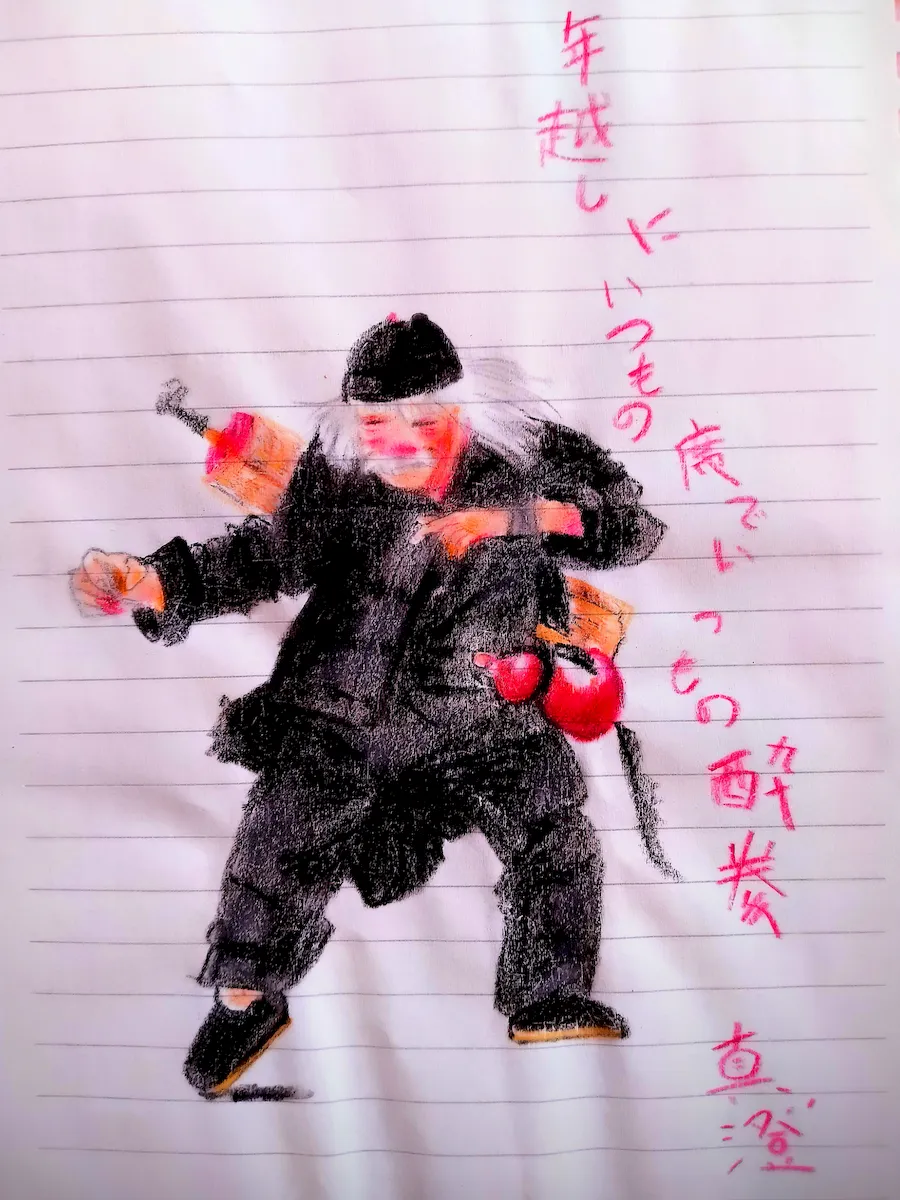 年越し
にいつもの
虎でいつもの
酔拳
真澄